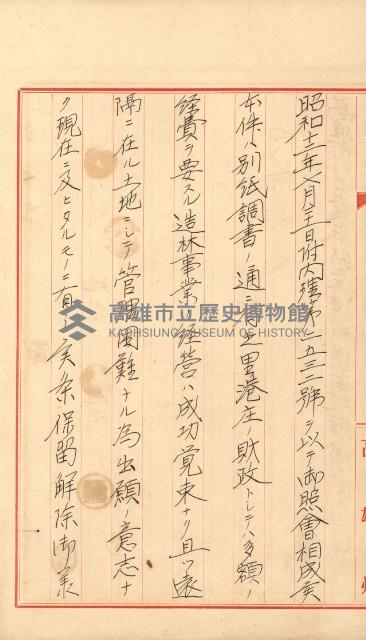 昭和十三年八月三日附内種第一五三二號ヲ以テ御照會相成候
本件ハ別紙調書ノ通ニテ里港庄ノ財政トシテハ多額ノ
経費ヲ要スル造林事業ノ経営ハ成功覚束ナク且ツ遠
隔ニ在ル土地ニシテ管理困難ナル為出願ノ意志ナ
ク現在ニ及ヒタルモノニ有之候条保留解除御
高雄州
高雄市立歷史博物館
KAOHSIUNG MUSEUM OF HISTORY